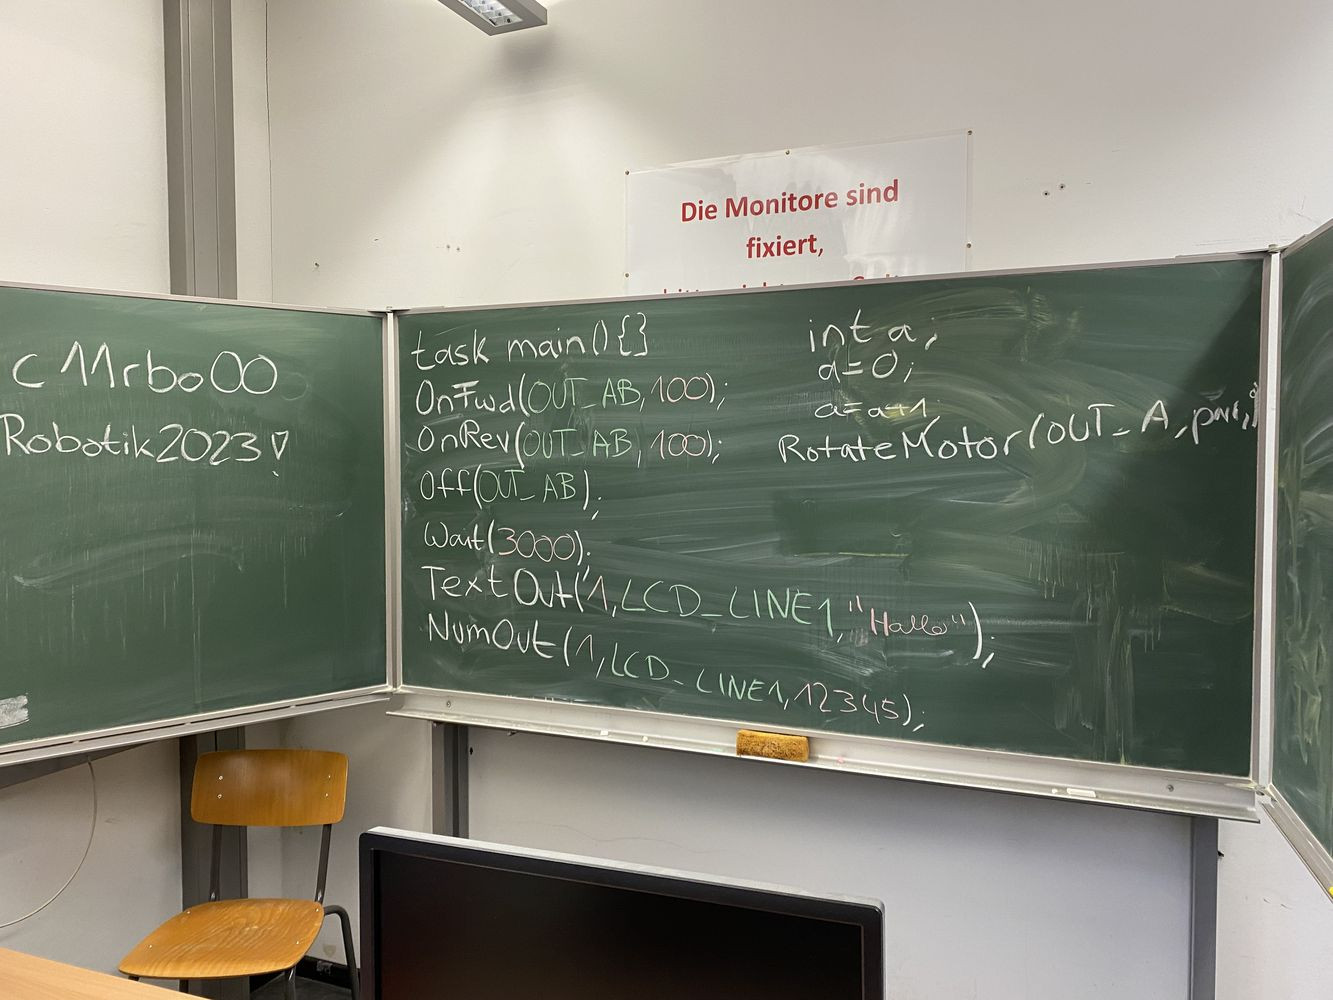 Die Monitore sind
fixiert,
c11rbo00
Robotik2023!
task main(){}
OnFwd(OUT_AB,100);
OnRev(OUT_AB,100);
Off(OUT_AB);
Wait(3000);
TextOut(1,LCD_LINE1,"Hallo");
NumOut(1,LCD_LINE1,12345);
int a;
a=0;
a=a+1;
RotateMotor(OUT_A,